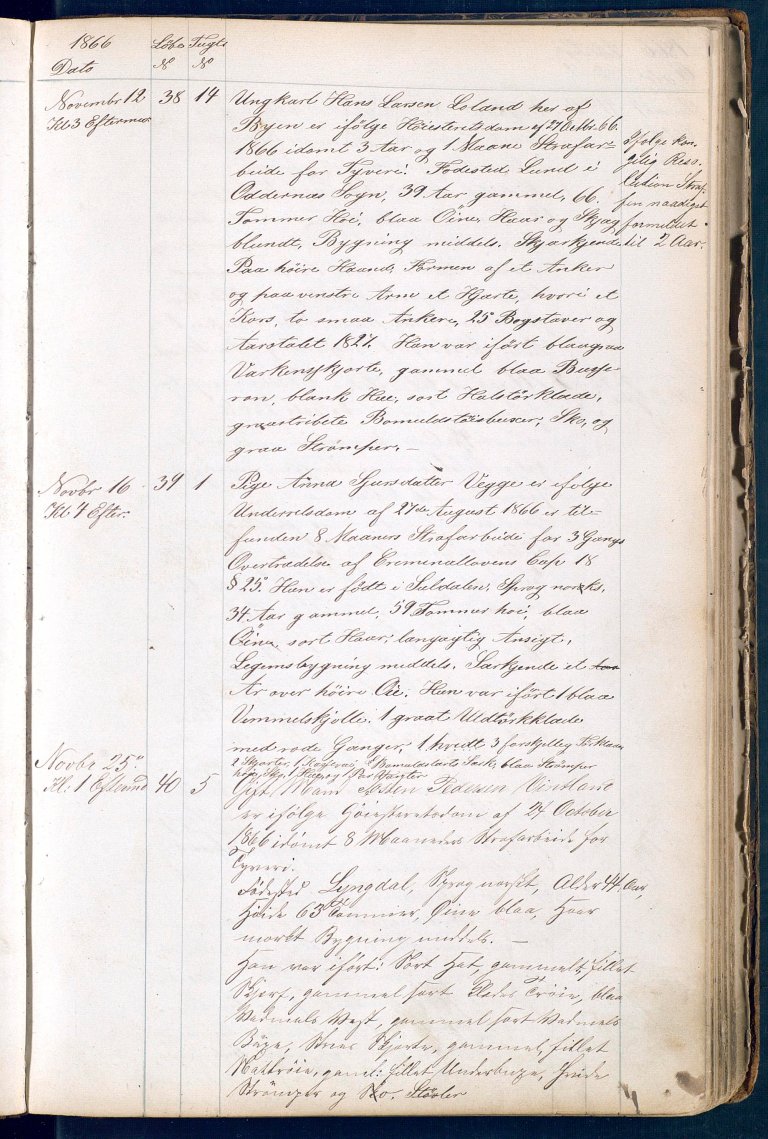 1866 Löbe Fugts
Dato N N
Novembr 12 38 14 Ungkarl Hans Larsen Loland her af
Kl 3 Efterm Byen er ifölge Höiesteretsdom af 27 Octbr 66.
1866 idömt 3 Aar og 1 Maane Strafar-
beide for Tyveri. Födested Lund i
Oddernæs Sogn, 39 Aar gammel, 66.
Tommer Höi, blaa Öine, Haar og Skjæg
blundt, Bygning middels. Skjærkjende
Paa höire Haand, Formen af et Anker
og paa venstre Arm et Hjærte, hvori et
Kors, to smaa Ankere, 25 Bogstaver og
Aarstalet 1827. Han var iført blaagraa
Varkenskjorte, gammel blaa Buse-
ron, blank Hue, sort Halstörklæde,
graastribete Bomuldstöisbuxer, Sko, og
graa Strömper. –
Ifölge kon-
gelig Reso-
lution Straf-
fen naadigst
formeldet
til 2 Aar.
Novbr 16 39 1 Pige Anna Sjursdatter Vegge er ifölge
Kl 7 Efter. Underretsdom af 27de August 1866 er til-
funden 8 Maaners Strafarbeide for 3 Gangs
Overtrædelse af Creminallovens Cap 18
§ 25. Hun er födt i Suldalen, Sprog norsk,
34 Aar gammel, 59 Tommer höi, blaa
Öine, sort Haar, langagtig Ansigt,
Legemsbygning meddels. Særkjende et
Ar over höire Öie. Hun var ifört 1 blaa
Vimmelskjolle. 1 graat Uldtörkklæde
med röde Ganger, 1 hvidt 3 forskjellig
2 Skjorter, 1 Bomuldstöis Særk, blaa Strömper
1 Par Vanter
Novbr 25 40 5 Gift Mand Peder Pedersen
Kl. 1 Efterm er ifölge Höiesteretsdom af 24 October
1866 idömt 8 Maaneders Strafarbeide for
Tyveri.
Födested Lyngdal, Sprog norsk, Alder 44 Aar,
Höide 63 Tommer, Öine blaa, Haar
mörkt Bygning middels. –
Han var ifört: Sort Hat, gammelt fillet
Skjerf, gammel sort Klædes Tröie, blaa
Vadmels Vest, gammel sort Vadmels
Buxe, Skjorte, gammel, fillet
Nattröie, gaml: fillet Underbuxe, hvide
Strömper og Sko. Stövler